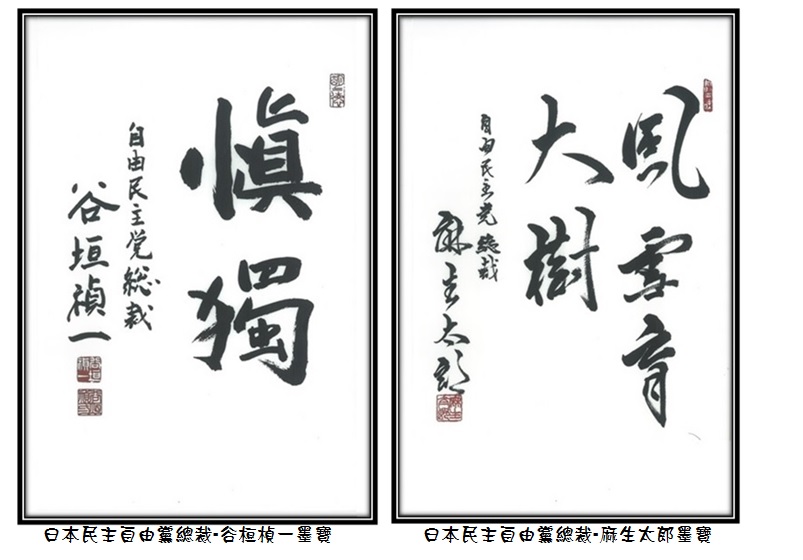 愼獨
自由民主党総裁
谷垣禎一
風雪育
大樹
自由民主党総裁
麻生太郎
日本民主自由黨總裁-谷桓楨一墨寶
日本民主自由黨總裁-麻生太郎墨寶